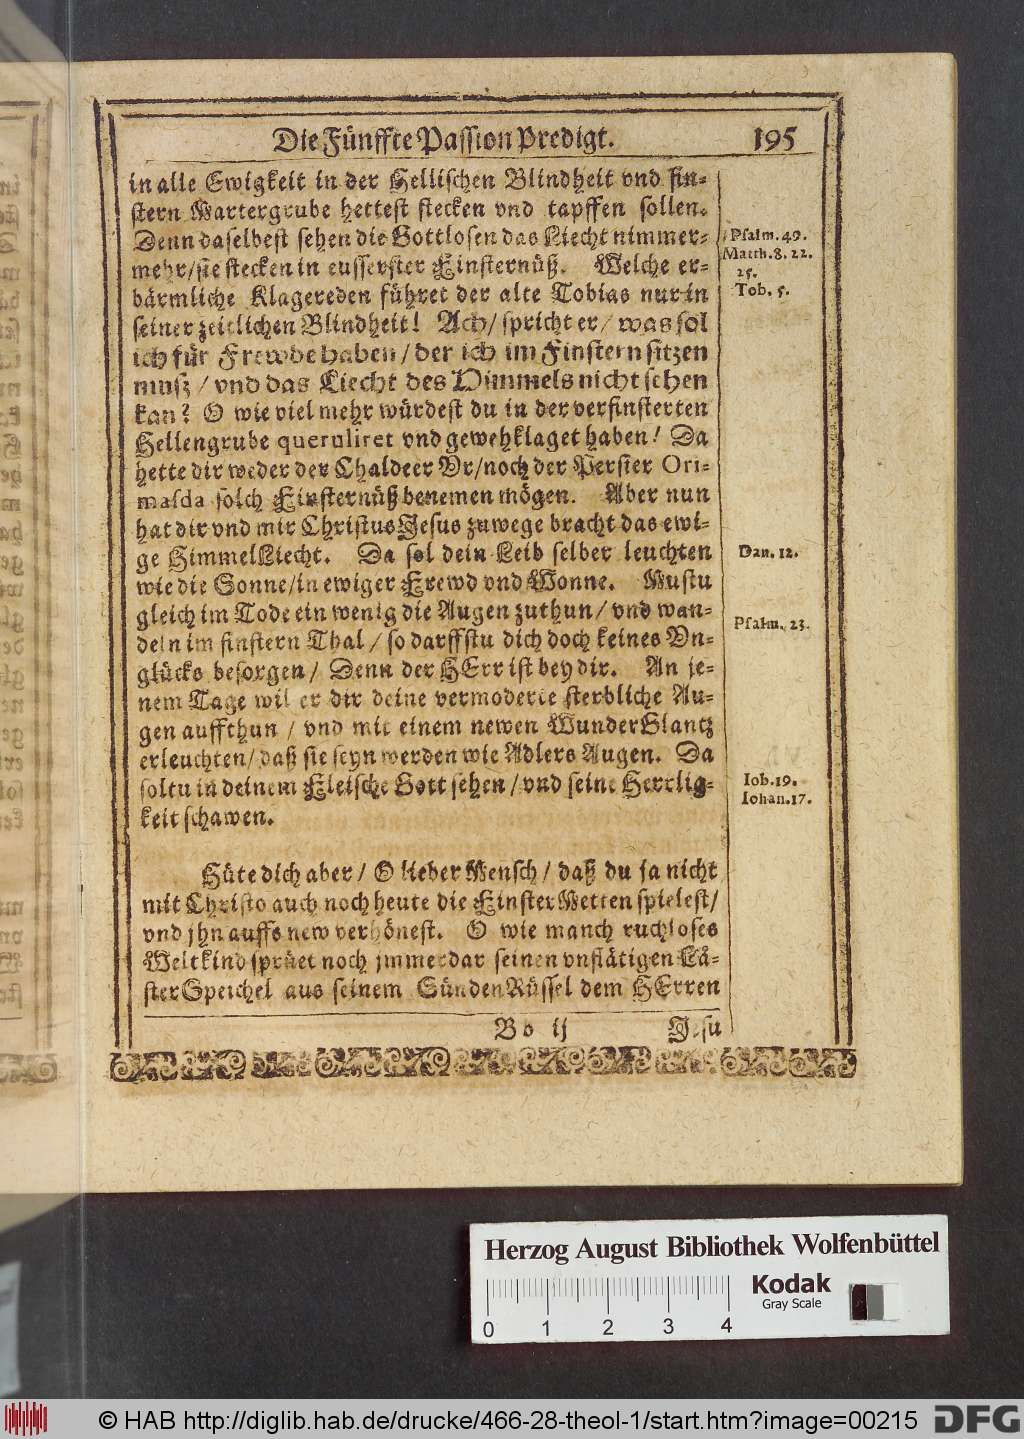 Die Fünffte Passion Predigt. 195
in alle Ewigkeit in der Hellischen Blindheit vnd fin-
stern Martergrube hettest stecken vnd tapffen sollen.
Denn daselbest sehen die Gottlosen das Liecht nimmer-
mehr/sie stecken in eusserster Finsternüß. Welche er-
bärmliche Klagereden führet der alte Tobias nur in
seiner zeitlichen Blindheit! Ach/ spricht er/ was sol
ich für Frewde haben/ der ich im Finstern sitzen
musz/ vnd das Liecht des Himmels nicht sehen
kan? O wie viel mehr würdest du in der verfinsterten
Hellengrube queruliret vnd gewehklaget haben! Da
hette dir weder der Chaldeer Vr/noch der Perster Ori-
masda solch Finsternüß benemen mögen. Aber nun
hat dir vnd mir Christus Jesus zuwege bracht das ewi-
ge HimmelLiecht. Da sol dein Leib selber leuchten
wie die Sonne/in ewiger Frewd vnd Wonne. Mustu
gleich im Tode ein wenig die Augen zuthun/ vnd wan-
deln im finstern Thal/ so darffstu dich doch keines Vn-
glücks besorgen/ Denn der HErr ist bey dir. An je-
nem Tage wil er dir deine vermoderte sterbliche Au-
gen auffthun/ vnd mit einem newen WunderGlantz
erleuchten/ daß sie seyn werden wie Adlers Augen. Da
soltu in deinem Fleische Gott sehen/ vnd seine Herrlig-
keit schawen.
Hüte dich aber/ O lieber Mensch/ daß du ja nicht
mit Christo auch noch heute die FinsterMetten spielest/
vnd jhn auffs new verhönest. O wie manch ruchloses
Weltkind sprüet noch jmmerdar seinen vnflätigen Lä-
sterSpeichel aus seinem SündenRüssel dem HErren
Bb ij Jesu
Psalm. 49.
Matth. 8. 22.
25.
Tob. 5.
Dan. 12.
Psalm. 23.
Iob. 19.
Iohan. 17.
Herzog August Bibliothek Wolfenbüttel
Kodak
Gray Scale
0 1 2 3 4
© HAB http://diglib.hab.de/drucke/466-28-theol-1/start.htm?image=00215
DFG